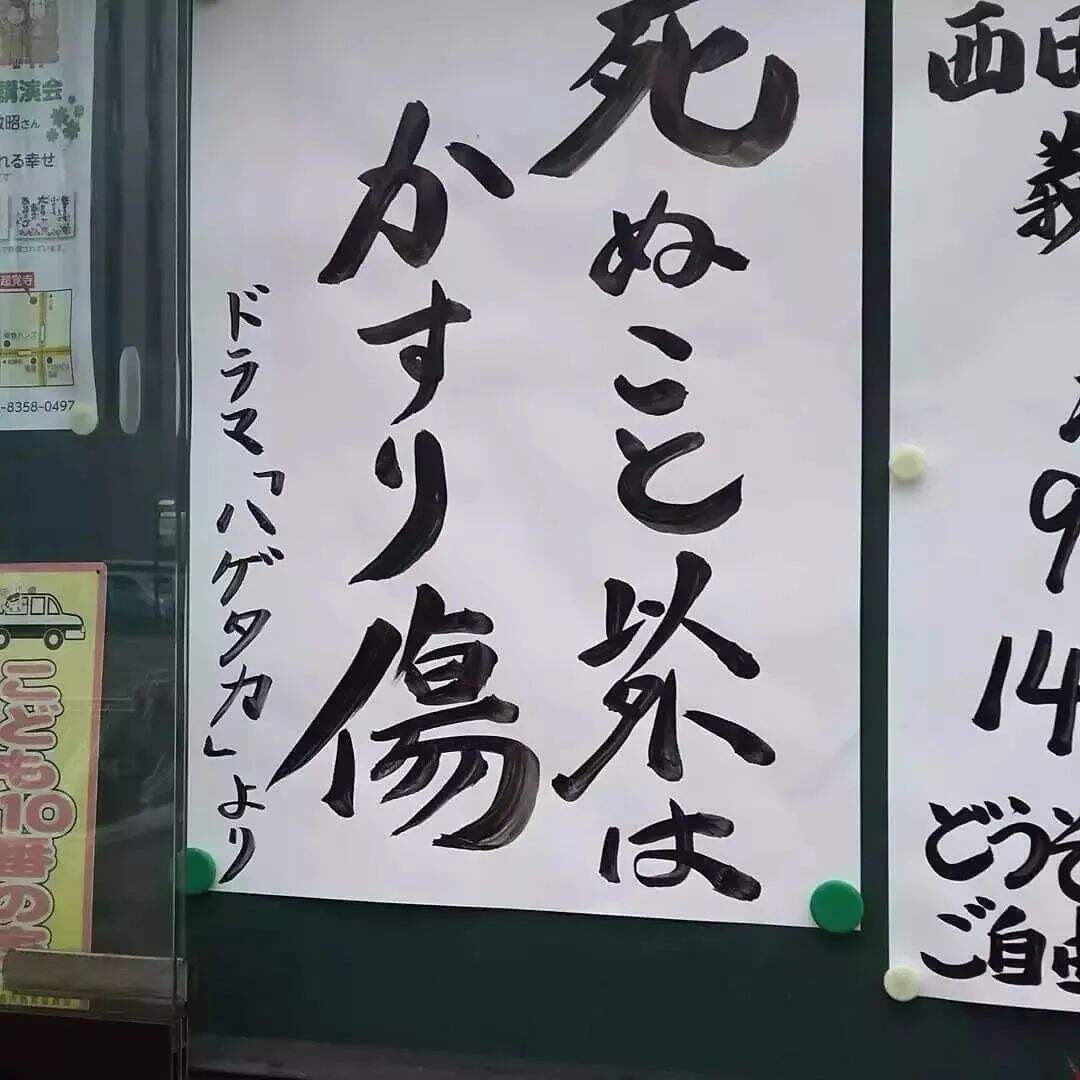 死ぬこと以外は
かすり傷
ドラマ「ハゲタカ」より
西田
義
9
14
どうぞ
ご自由
講演会
昭さん
れる幸せ
超覚寺
-8358-0497
こども10番の